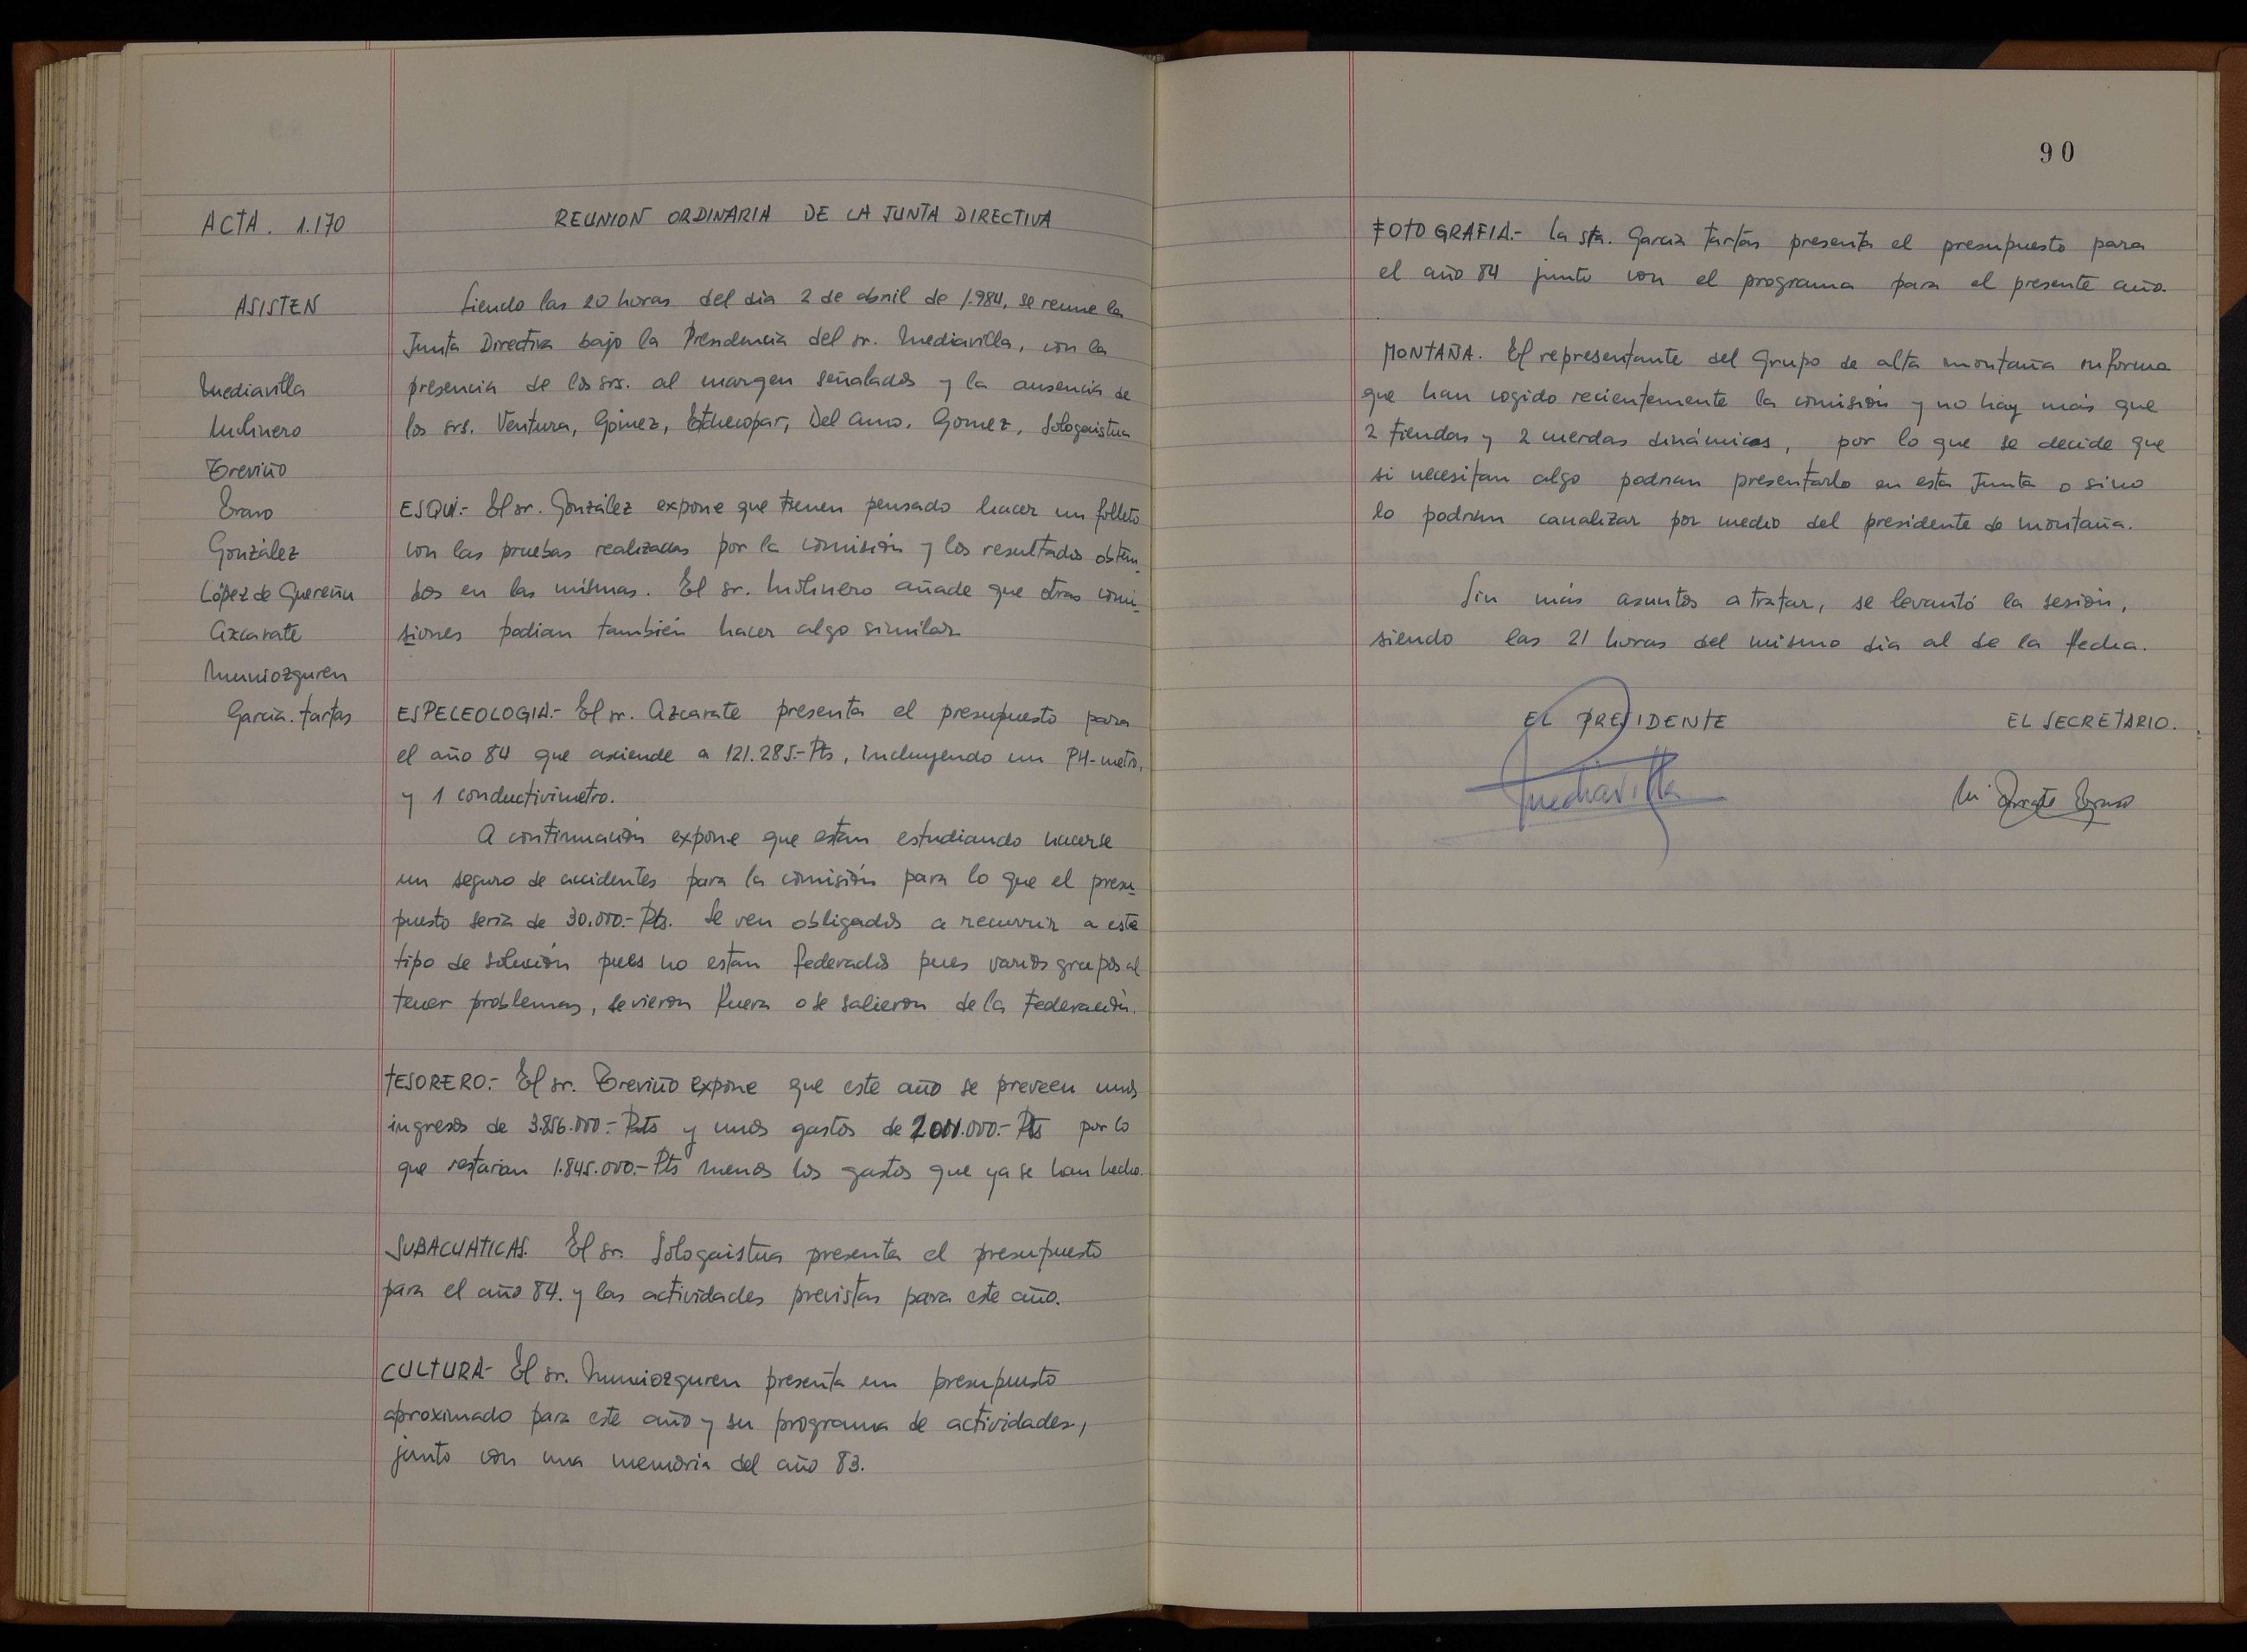 ACTA. 1.170
ASISTEN
Mediavilla
Molinero
Treviño
Eraso
González
López de Guereñu
Azcarate
Muniozguren
García. Tartas
REUNION ORDINARIA DE LA JUNTA DIRECTIVA
Siendo las 20 horas del dia 2 de abril de 1.984, se reune la
Junta Directiva bajo la Presidencia del sr. Mediavilla, con la
presencia de los srs. al margen señalados y la ausencia de
los srs. Ventura, Gómez, Etchecopar, Del Amo. Gomez, Sologaistua
ESQUI.- El sr. González expone que tienen pensado hacer un folleto
con las pruebas realizadas por la comisión y los resultados obteni
dos en las mismas. El sr. Molinero añade que otras comi
siones podian también hacer algo similar
ESPELEOLOGIA.- El sr. Azcarate presenta el presupuesto para
el año 84 que asciende a 121.285.- Pts, incluyendo un PH-metro,
y 1 conductivimetro.
A continuación expone que estan estudiando hacerse
un seguro de accidentes para la comisión para lo que el presu
puesto seria de 30.000.- Pts. Se ven obligados a recurrir a este
tipo de solución pues no estan federados pues varios grupos al
tener problemas, se vieron fuera o se salieron de la Federación.
TESORERO.- El sr. Treviño expone que este año se preveen unos
ingresos de 3.856.000.- Pts y unos gastos de 2011.000.- Pts por lo
que restarian 1.845.000.- Pts menos los gastos que ya se han hecho.
SUBACUATICAS. El sr. Sologaistua presenta el presupuesto
para el año 84. y las actividades previstas para este año.
CULTURA- El sr. Muniozguren presenta un presupuesto
aproximado para este año y su programa de actividades,
junto con una memoria del año 83.
90
FOTOGRAFIA.- La sta. García Tartas presenta el presupuesto para
el año 84 junto con el programa para el presente año.
MONTAÑA. El representante del Grupo de alta montaña informa
que han cogido recientemente la comisión y no hay más que
2 tiendas y 2 cuerdas dinámicas, por lo que se decide que
si necesitan algo podrian presentarlo en esta Junta o sino
lo podrian canalizar por medio del presidente de montaña.
Sin más asuntos a tratar, se levantó la sesión,
siendo las 21 horas del mismo dia al de la fecha.
EL PRESIDENTE EL SECRETARIO.
Mediavilla